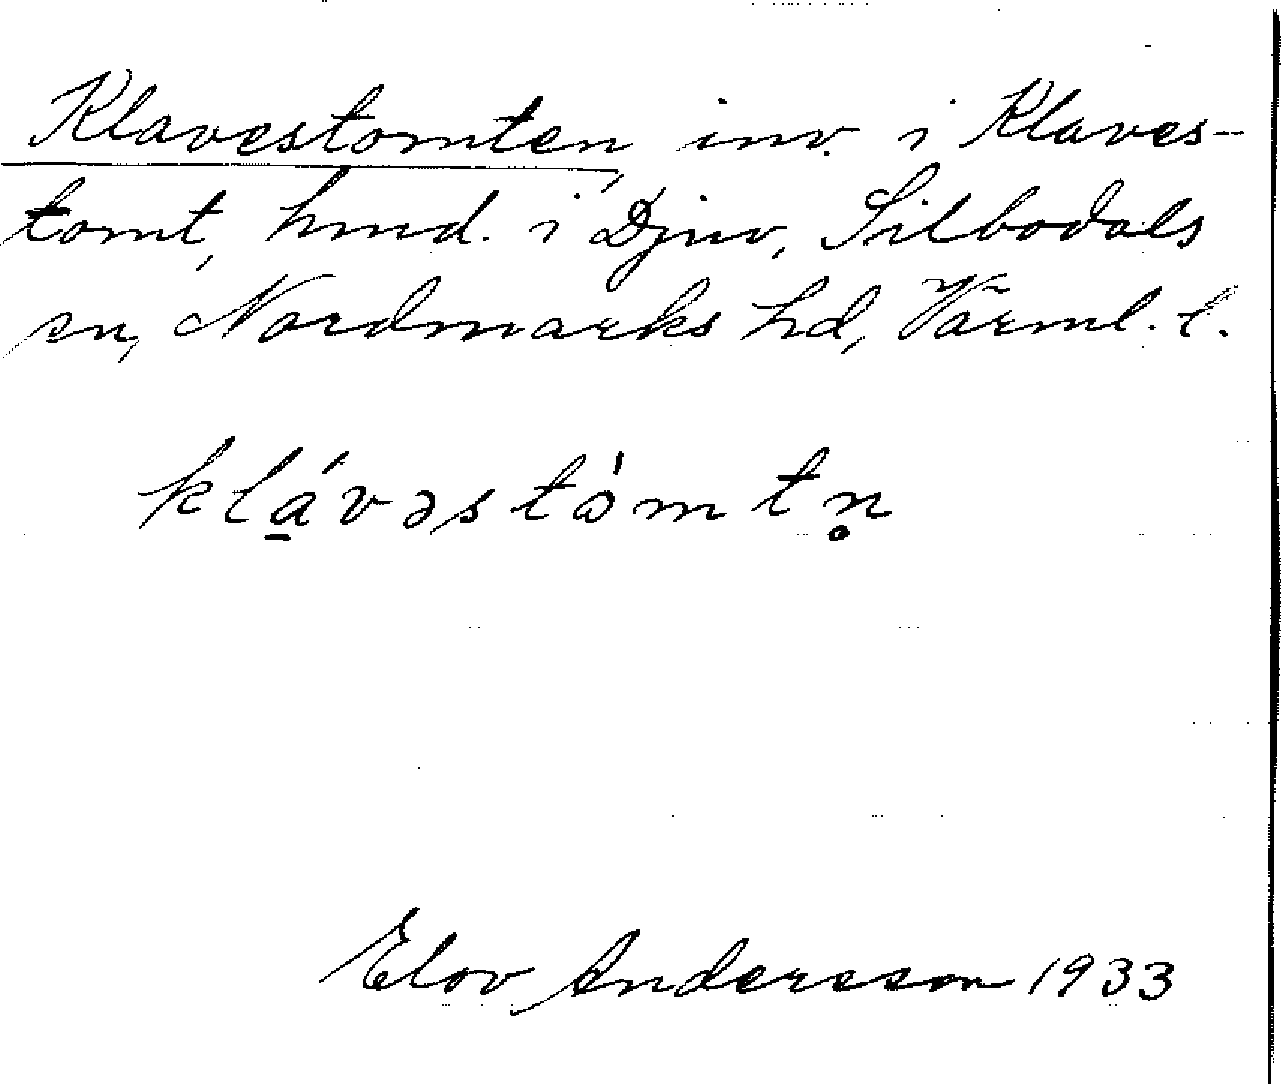 Klavestomten, inv. i Klaves-
tomt, hmd. i Djuv, Silbodals
sn, Nordmarks hd, Värml. l.
klá̱vəstɷ̀mtn̥
Elov Andersson 1933